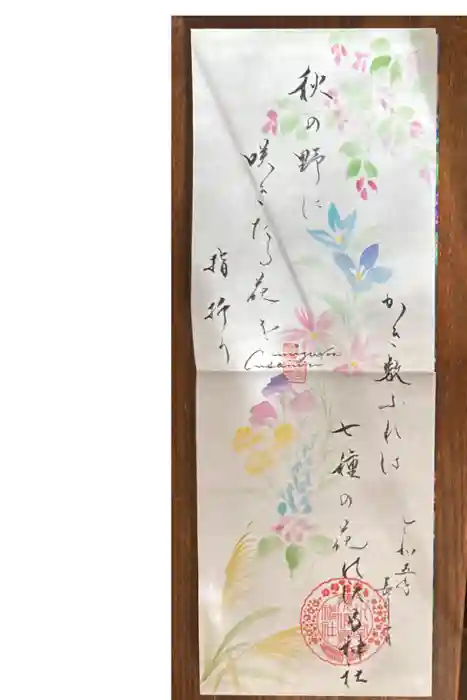 秋の野に
咲きたる花を
指折り
かき数ふれは
七種の花
神社
令和五年